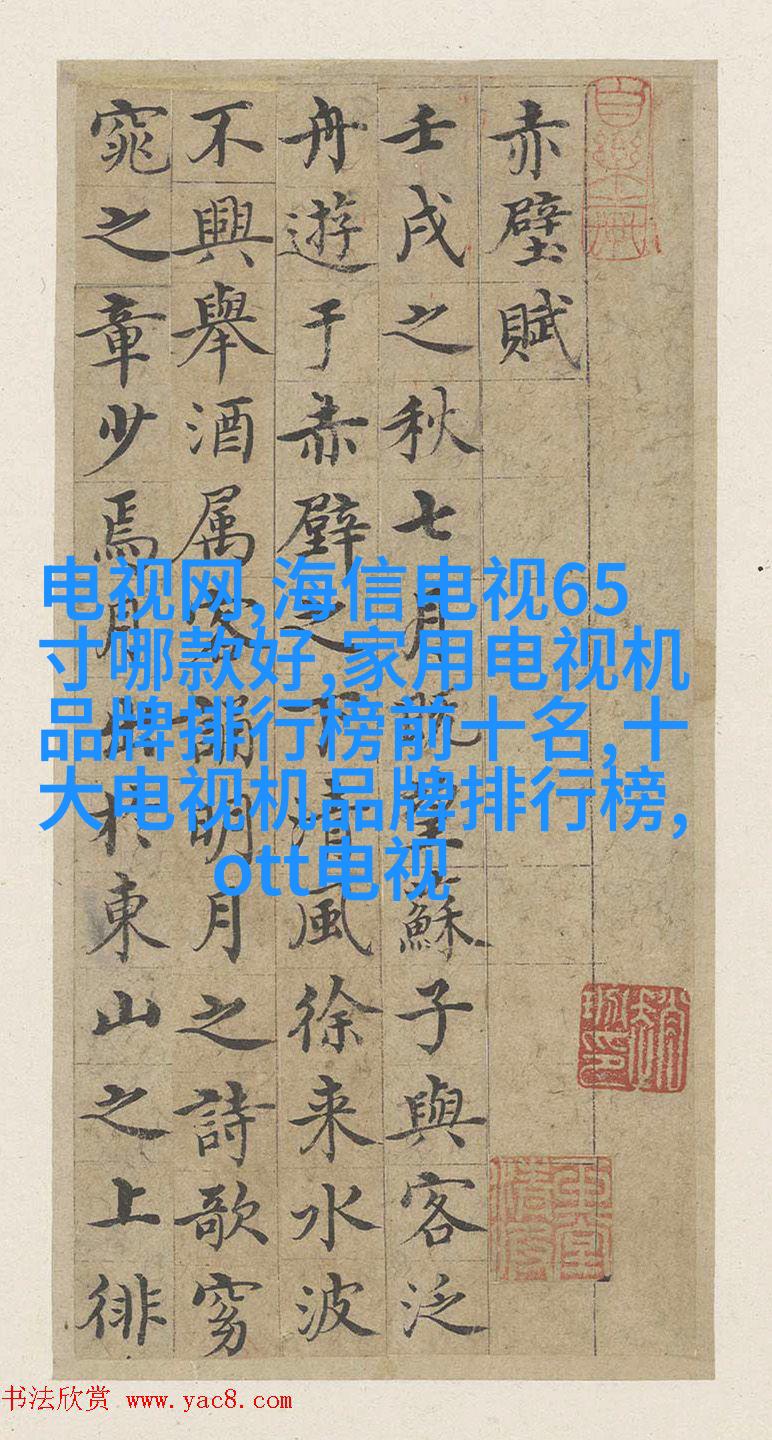 赤壁賦
壬戌之秋七月既望蘇子與客泛
舟遊于赤壁之下清風徐来水波
不興舉酒属客誦明月之詩歌窈
窕之章少焉月出於東山之上徘
电视网,海信电视65
寸哪款好,家用电视机
品牌排行榜前十名,十
大电视机品牌排行榜,
ott电视
书法欣赏 www.yac8.com